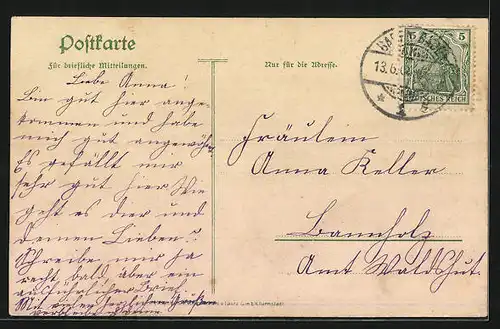 Postkarte
Für briefliche Mitteilungen.
Nur für die Adresse.
5 5
DEUTSCHES REICH
13.6.
Liebe Anna!
Bin gut hier ange-
kommen und habe
mich gut angewöhnt
Es gefällt mir
sehr gut hier Wie
geht es dier und
deinen Lieben?
Schreibe mir ja
recht bald aber ein
ausführlicher Brief
Mit vielen herzlichen Grüßen
verbleibe
Fräulein
Anna Keller
Bannholz
Amt Waldshut.